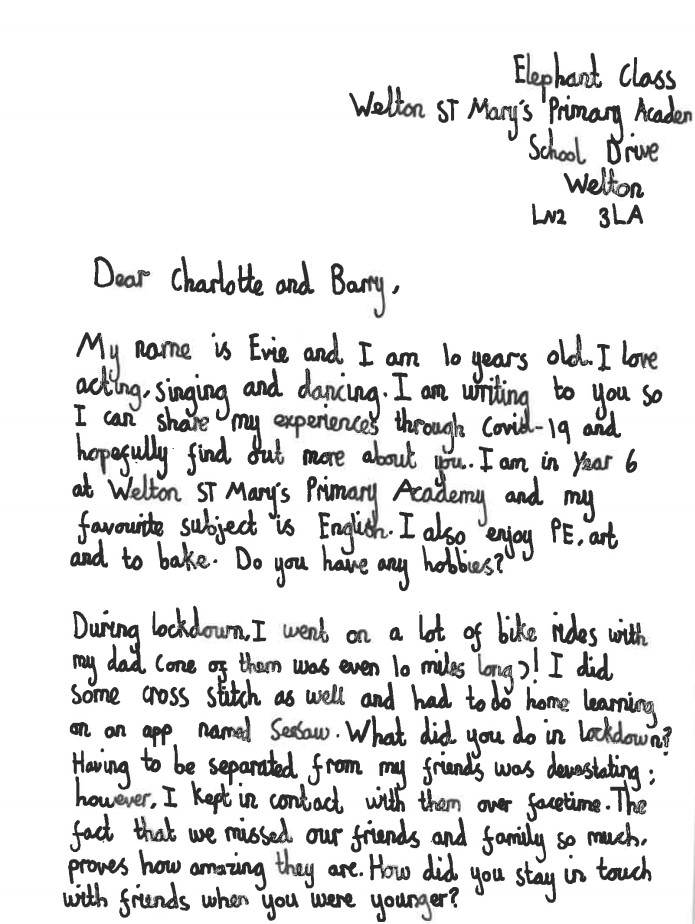 Elephant Class
Welton ST Mary's Primary Academ
School Drive
Welton
LN2 3LA
Dear Charlotte and Barry,
My name is Evie and I am 10 years old. I love
acting, singing and dancing. I am writing to you so
I can share my experiences through Covid-19 and
hopefully find out more about you. I am in Year 6
at Welton ST Mary's Primary Academy and my
favourite subject is English. I also enjoy PE, art
and to bake. Do you have any hobbies?
During lockdown, I went on a lot of bike rides with
my dad (one of them was even 10 miles long)! I did
some cross stitch as well and had to do home learning
on an app named SeeSaw. What did you do in lockdown?
Having to be separated from my friends was devastating;
however, I kept in contact with them over facetime. The
fact that we missed our friends and family so much,
proves how amazing they are. How did you stay in touch
with friends when you were younger?